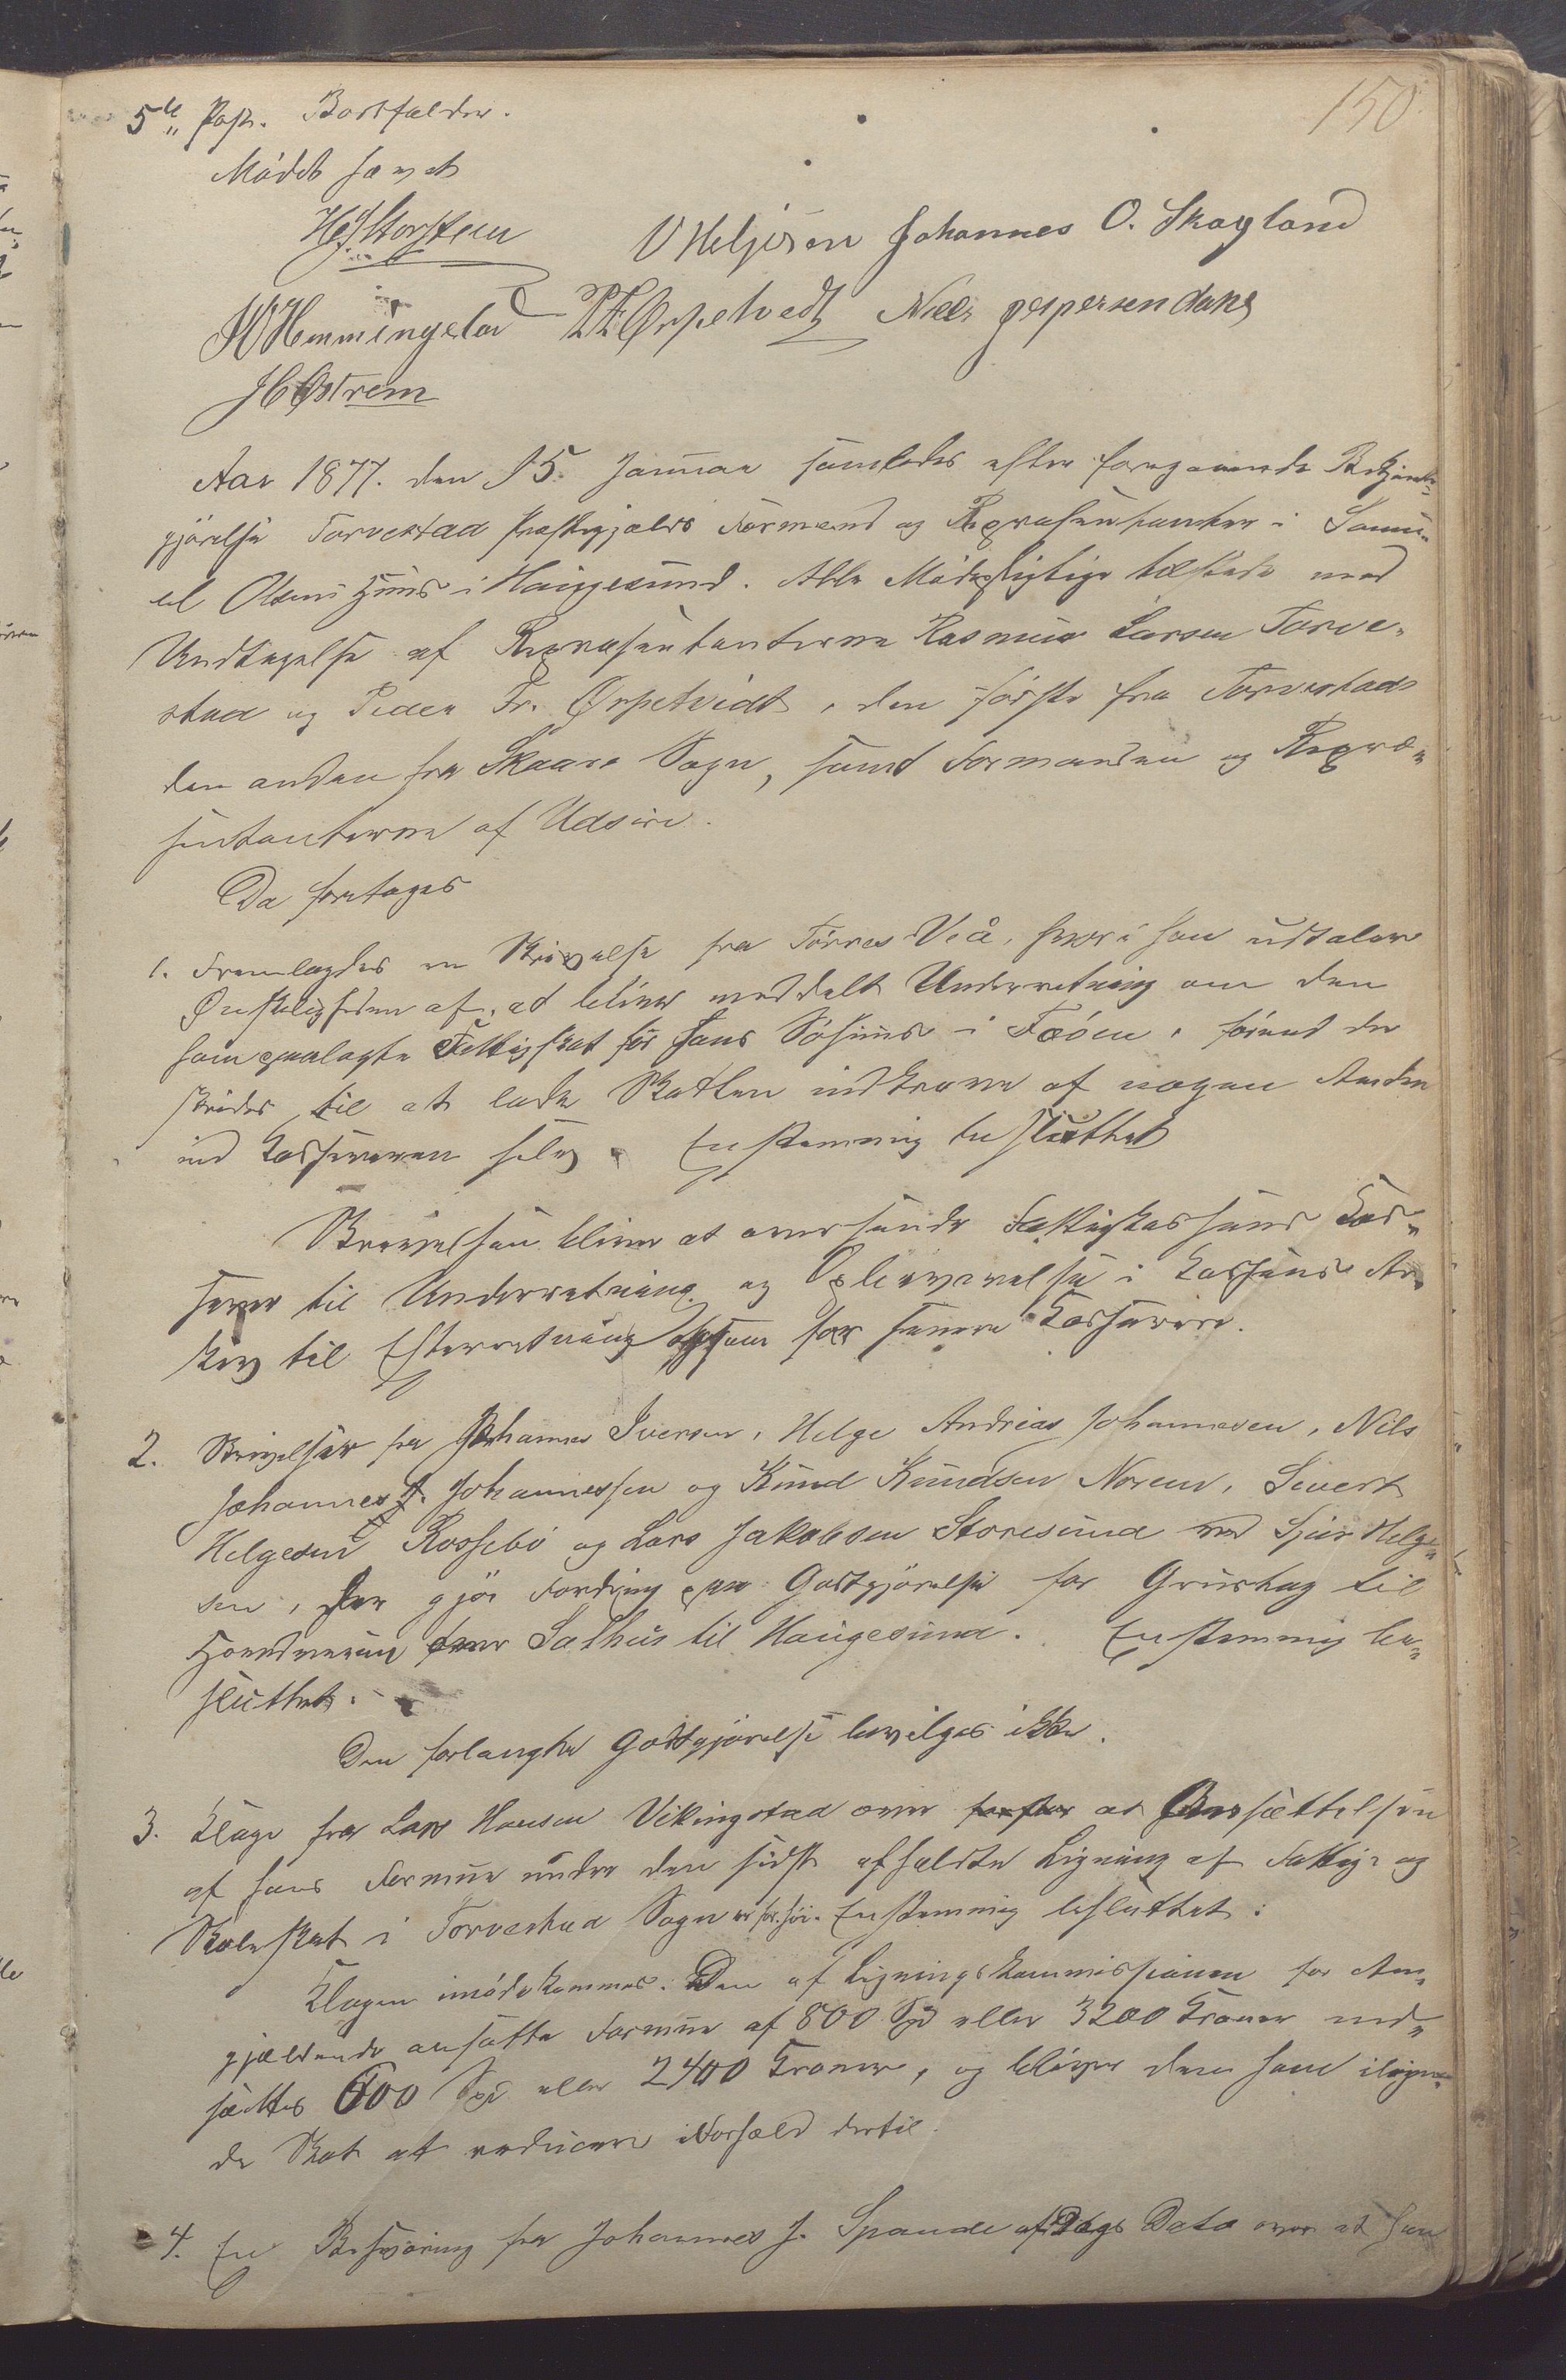 150
5te Post. Bortfalder.
Mödet hævet
H. J. Storstein
V Helgesen Johannes O. Skogland
H Hemmingstad P. F. Ørpetvedt Niels Jespersen Hauge
J C Østrem
Aar 1877. den 15. Januar samledes efter foregaaende Bekjendt-
gjörelse Torvestad Præstegjælds Formænd og Repræsentanter i Samu-
el Olsens Huus i Haugesund. Alle Mödepligtige tilstede med
Undtagelse af Repræsentanterne Rasmus Larsen Torve-
stad og Peder Fr. Ørpetvedt, den förste fra Torvestads
den anden fra Skaare Sogn, samt Formanden og Repræ-
sentanterne af Udsire.
Da foretoges
1. Fremlagdes en Skrivelse fra Törres Veå, hvori han udtaler
Ønskeligheden af, at blive meddelt Underretning om den
ham paalagte Fattigskat for hans Söhuus i Fæöen, forend der
skrides til at lade Skatten indkræve af nogen Anden
end Kassereren selv. Enstemmig besluttet
Skrivelsen bliver at oversende Fattigkassens Kas-
serer til Underretning og Opbevarelse i Kassens Ar-
kiv til Efterretning for senere Kasserere.
2. Skrivelser fra Johannes Iversen, Helge Andreas Johannesen, Nils
Johannes J. Johannessen og Knud Knudsen Norem, Sivert
Helgesen Rossebö og Lars Jakobsen Storesund ved Sjur Helge-
sen, der gjör Fordring paa Godtgjörelse for Gruustag til
Hovedveien fra Salhus til Haugesund. Enstemmig be-
sluttet.
Den forlangte Godtgjörelse bevilges ikke.
3. Klage fra Lars Hansen Vikingstad over at Ansættelsen
af hans Formue under den sidst afholdte Ligning af Fattig- og
Skoleskat i Torvestad Sogn er for höi. Enstemmig besluttet:
Klagen imödekommes. Den af Ligningskommissionen for An-
gjældende ansatte Formue af 800 Spd eller 3200 Kroner ned-
sættes 600 Spd eller 2400 Kroner, og bliver den ham ilign-
de Skat at reducere i Forhold dertil.
4. En Besværing fra Johannes J. Spanne af Dags Dato over at han